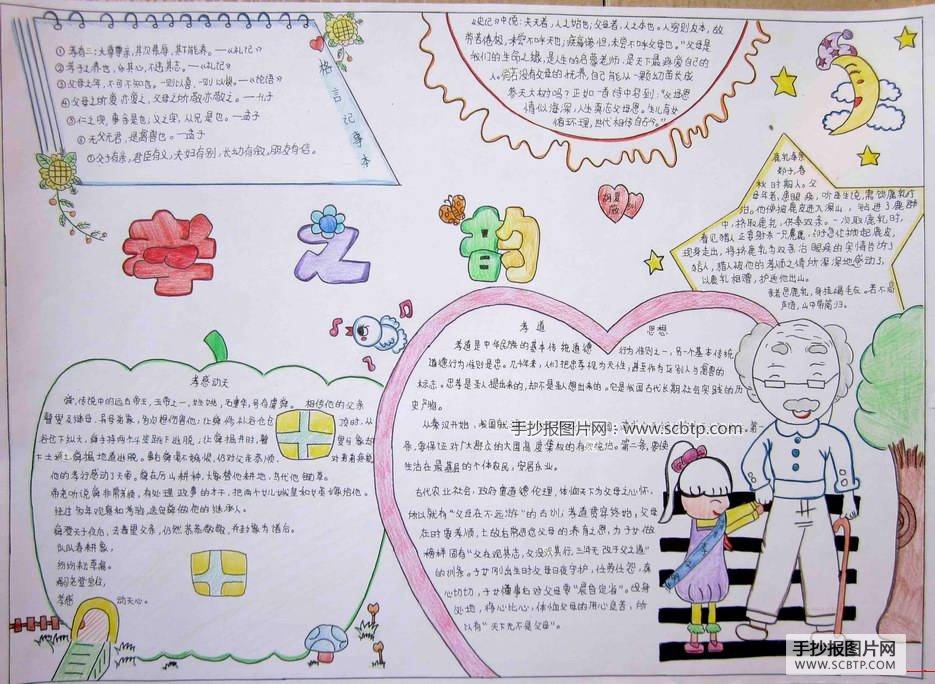 格言记尊本
①孝有三:大尊尊亲,其次弗辱,其下能养。—《礼记》
②孝子之养也,乐其心,不违其志。—《礼记》
③父母之年,不可不知也。一则以喜,一则以惧。—《论语》
④父母之所爱亦爱之,父母之所敬亦敬之。—孔子
⑤仁之实,事亲是也;义之实,从兄是也。—孟子
⑥无父无君,是禽兽也。—孟子
⑦父子有亲,君臣有义,夫妇有别,长幼有叙,朋友有信。
《史记》中说:夫天者,人之始也;父母者,人之本也。人穷则反本,故
劳苦倦极,未尝不呼天也;疾痛惨怛,未尝不呼父母也。"父母是
我们的生命之源,是人生的启蒙老师,是天下最疼爱自己的
人。倘若没有父母的抚养,自己能从一颗幼苗长成
参天大树吗?正如一首诗中写到:"父母恩
情似海深,人生莫忘父母恩。生儿育女
循环理,世代相传自古今。"
鹿乳奉亲
郯子,春
秋时期人。父
母年老,患眼疾,
他便披鹿皮进入深山,钻进鹿群
中,挤取鹿乳,供奉双亲。一次取鹿乳时,
看见猎人正要射杀一只麂鹿,郯子急忙掀起鹿皮
现身走出,将挤取鹿乳为双亲治眼疾的实情告诉了
猎人,猎人被他的孝顺之情所深深地感动了,
以鹿乳相赠,护送他出山。
亲老思鹿乳,身挂褐毛衣。若不高
声语,山中带箭归。
孝之韵
孝感动天
舜,传说中的远古帝王,五帝之一,姓姚,名重华,号有虞氏。相传他的父亲
瞽叟及继母、异母弟象,多次想害他:让舜修补谷仓仓
顶时,从
谷仓下纵火,舜手持两个斗笠跳下逃脱;让舜掘井时,瞽
叟与象却
下土填井,舜掘地道逃脱。事后舜毫不嫉恨,仍对父亲恭顺,
对弟弟慈爱。
他的孝行感动了天帝。舜在历山耕种,大象替他耕地,鸟代他锄草。
帝尧听说舜非常孝顺,有处理政事的才干,把两个女儿娥皇和女英嫁给他。
经过多年观察和考验,选定舜做他的继承人。
舜登天子位后,去看望父亲,仍然恭恭敬敬,并封象为诸侯。
队队春耕象,
纷纷耘草禽。
嗣尧登宝位,
孝感动天心。
孝道 思想
孝道是中华民族的基本传统道德行为准则之一,另一个基本传统
道德行为准则是忠。几千年来,人们把忠孝视为天性,甚至作为区别人与禽兽的
标志。忠孝是圣人提出来的,却不是圣人想出来的。它是我国古代长期社会实践的历
史产物。
生活在最基层的个体农民,安居乐业。
古代农业社会,政府重道德伦理,体恤天下为父母之心怀。
所以就有"父母在不远游"的古训;孝道贯穿始终,父母
在时尊孝顺,
榜样 固有"父在观其志,父没观其行,三年无改于父之道"
的训条。子女刚出生时父母日夜守护,任劳任怨,真
心切切,子女懂事后对父母要"晨昏定省"。设身
处地,将心比心,体恤父母的用心良苦,所
以有"天下无不是父母"。
手抄报图片网:www.scbtp.com
手抄报图片网
WWW.SCBTP.COM